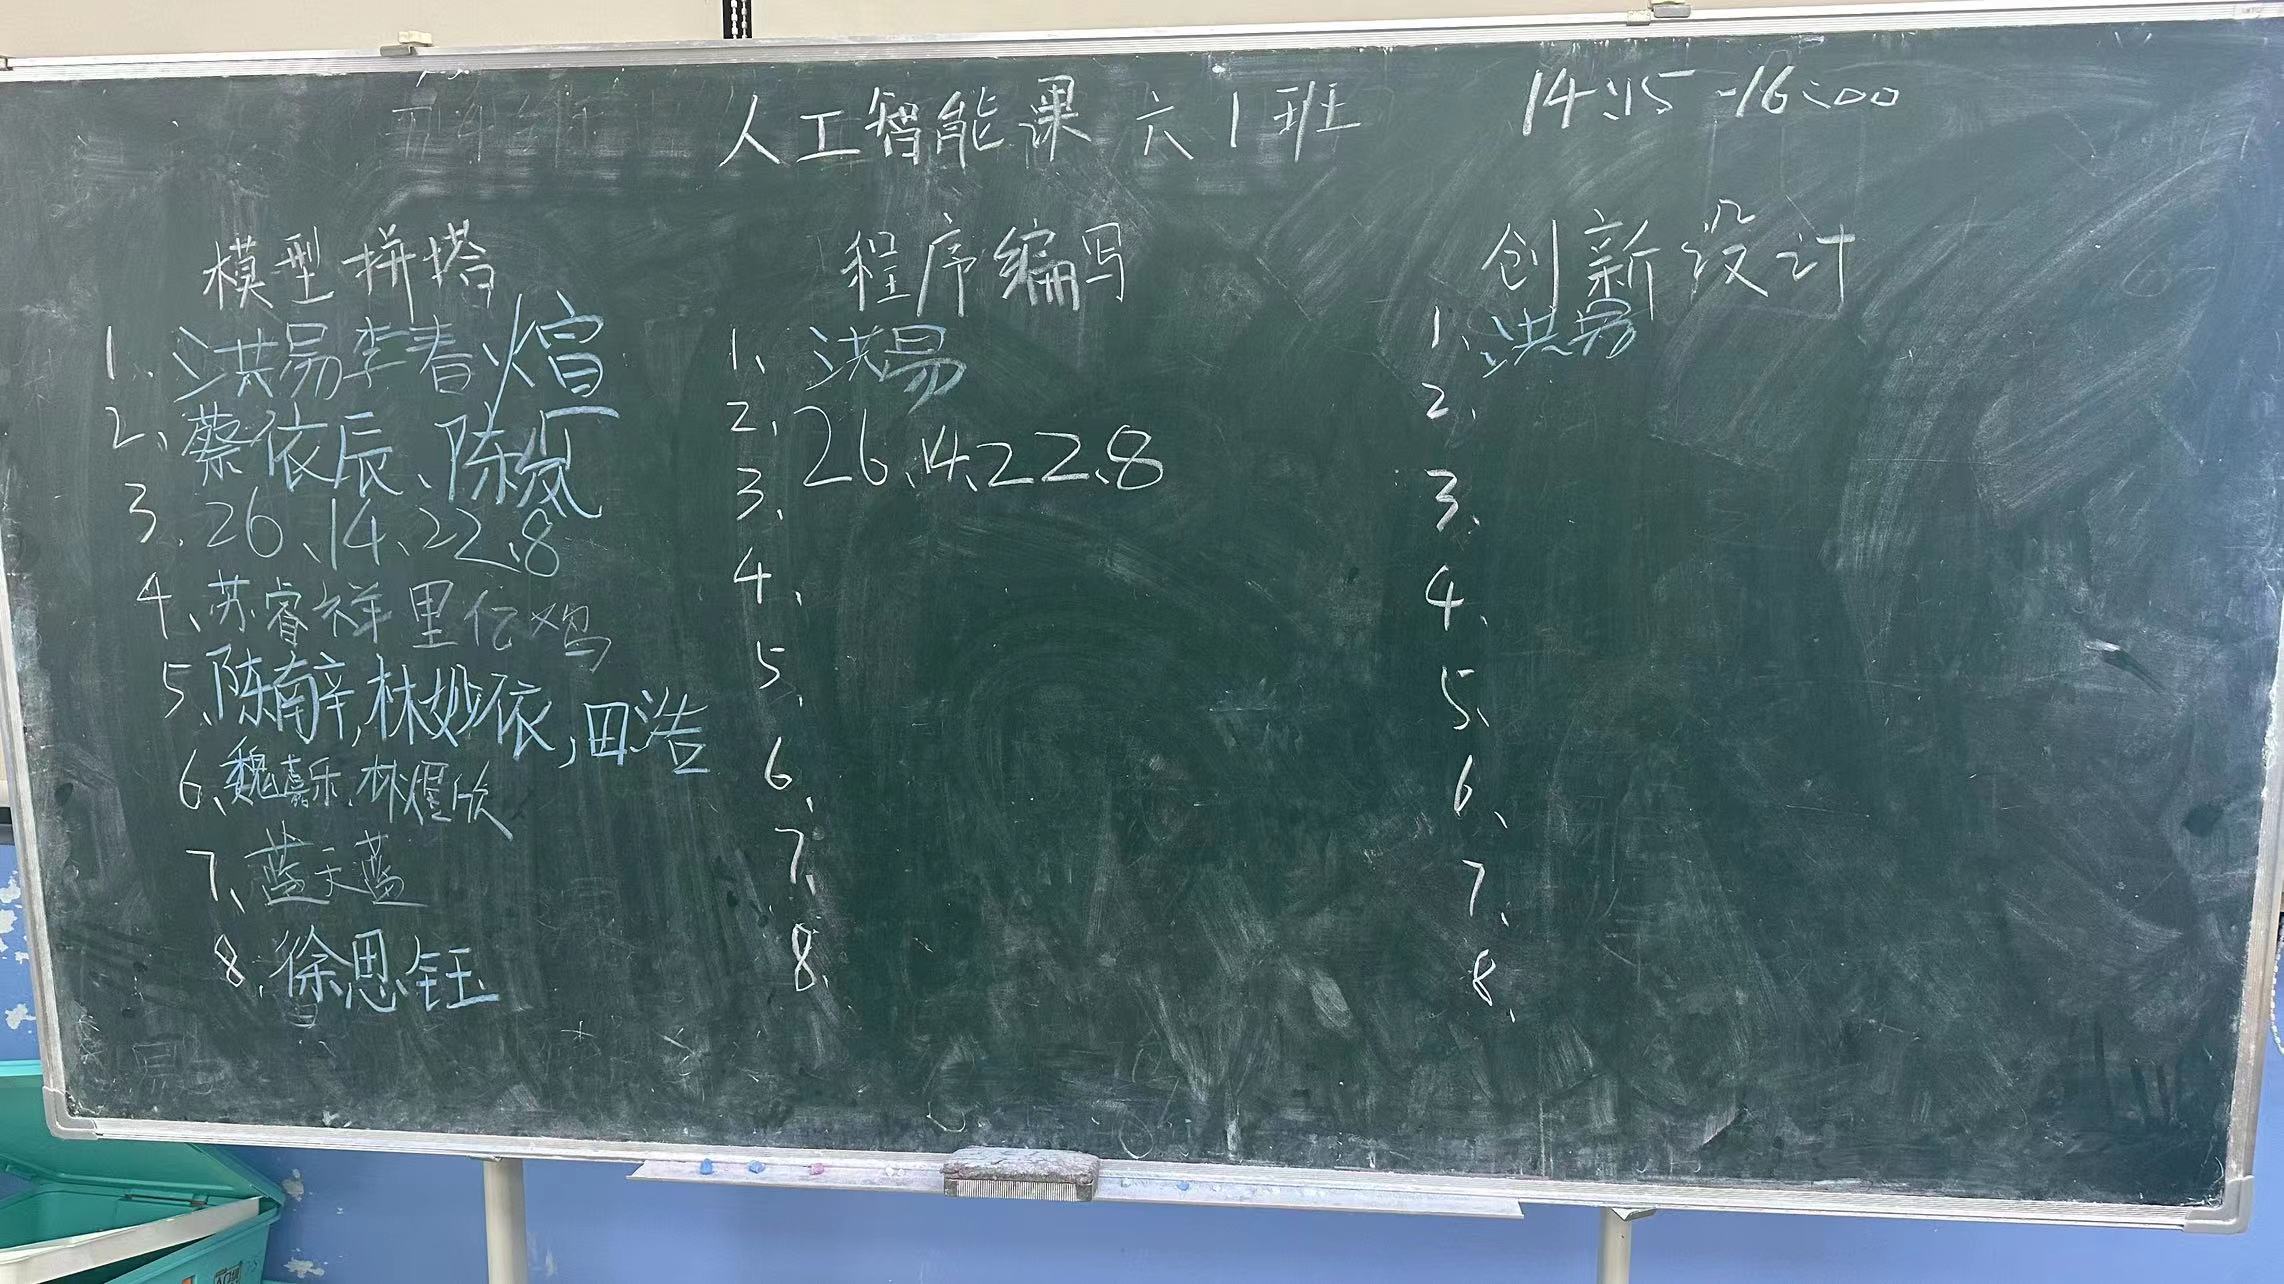 人工智能课 六1班 14:15-16:00
模型拼搭
1、洪易李春煊
2、蔡依辰、陈岚
3、26、14、22、8
4、苏睿祥里亿鸡
5、陈南辛,林妙依,田浩
6、魏嘉乐、林煜欣
7、蓝天蓝
8、徐思钰
程序编写
1、洪易
2、26、14、22、8
3、
4、
5、
6、
7、
8、
创新设计
1、洪易
2、
3、
4、
5、
6、
7、
8、